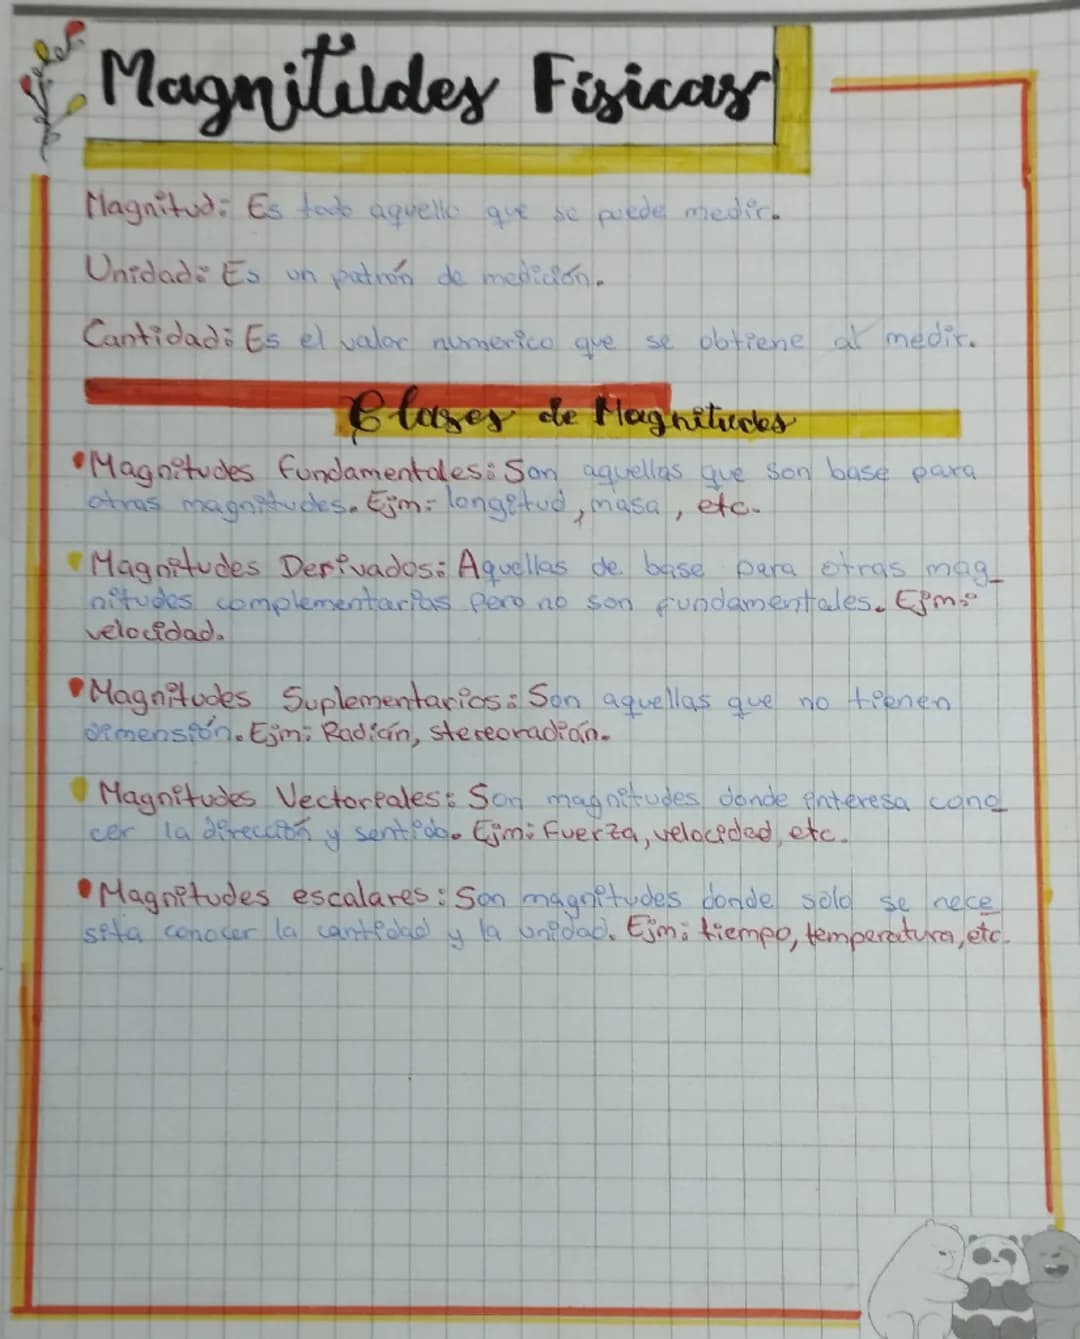 Magnitudes Fisicas
Magnitud: Es todo aquello que se puede medir.
Unidad: Es un patrón de medición.
Cantidad: Es el valor numerico que se obtiene al medir.
Clases de Magnitudes
Magnitudes Fundamentales: Son aquellas que son base para
otras magnitudes. Ejm: longitud, masa, etc.
Magnitudes Derivados: Aquellas de base para otras mag_
nitudes complementarias pero no son fundamentales. Ejm:
velocidad.
Magnitudes Suplementarios: Son aquellas que no tienen
dimensión. Ejm: Radián, stereoradián.
Magnitudes Vectoriales: Son magnitudes donde interesa cono
cer la dirección y sentido. Ejm: Fuerza, velocidad, etc.
Magnitudes escalares: Son magnitudes donde solo se nece
sita conocer la cantidad y la unidad. Ejm: tiempo, temperatura, etc.